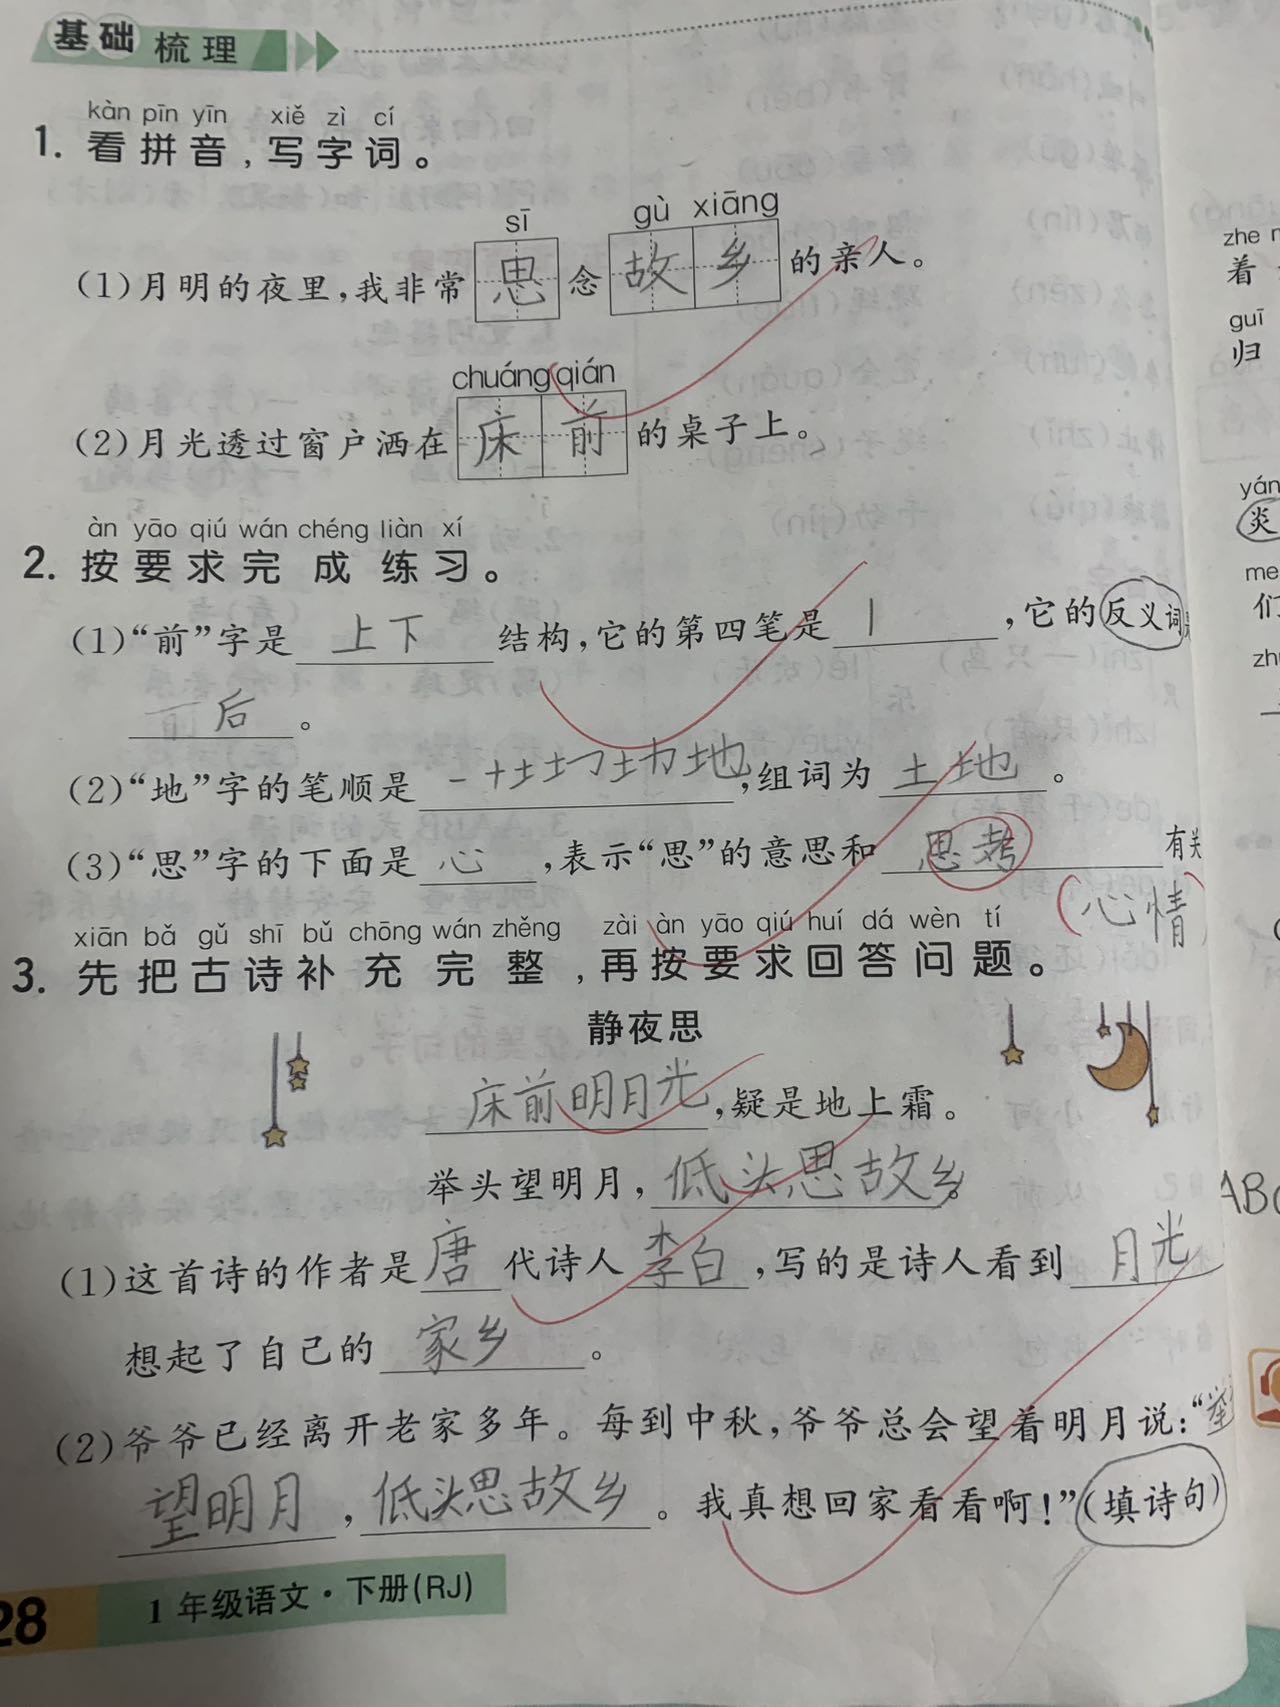 基础梳理
kàn pīn yīn xiě zì cí
1. 看拼音，写字词。
sī gù xiāng
(1)月明的夜里，我非常思念故乡的亲人。
chuáng qián
(2)月光透过窗户洒在床前的桌子上。
àn yāo qiú wán chéng liàn xí
2. 按要求完成练习。
(1)“前”字是上下结构，它的第四笔是丨，它的反义词
后。
(2)“地”字的笔顺是一十土圵圸地，组词为土地。
(3)“思”字的下面是心，表示“思”的意思和思考有关
(心情)
xiān bǎ gǔ shī bǔ chōng wán zhěng zài àn yāo qiú huí dá wèn tí
3. 先把古诗补充完整，再按要求回答问题。
静夜思
床前明月光，疑是地上霜。
举头望明月，低头思故乡。
(1)这首诗的作者是唐代诗人李白，写的是诗人看到月光
想起了自己的家乡。
(2)爷爷已经离开老家多年。每到中秋，爷爷总会望着明月说：“举
望明月，低头思故乡。我真想回家看看啊！”(填诗句)
28
1年级语文·下册(RJ)
zhe
着
guī
归
yán
炎
me
们
zh
ABC